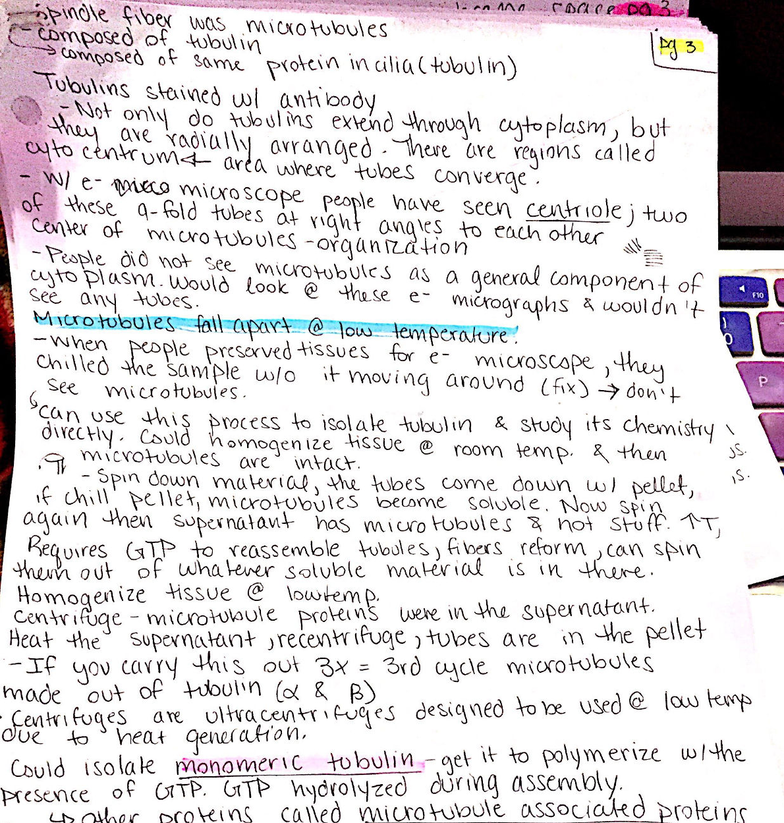 space pg 3
pg 3
Spindle fiber was microtubules
- composed of tubulin
→ composed of same protein in cilia (tubulin)
Tubulins stained w/ antibody
- Not only do tubulins extend through cytoplasm, but
they are radially arranged. There are regions called
cytocentrum ← area where tubes converge.
- W/ e- microscope people have seen centriole; two
of these 9-fold tubes at right angles to each other
center of microtubules -organization
- People did not see microtubules as a general component of
cytoplasm. Would look @ these e- micrographs & wouldn't
see any tubes.
Microtubules fall apart @ low temperature.
- When people preserved tissues for e- microscope, they
chilled the sample w/o it moving around (fix) → don't
see microtubules.
can use this process to isolate tubulin & study its chemistry
directly. Could homogenize tissue @ room temp. & then
microtubules are intact.
- Spin down material, the tubes come down w/ pellet,
if chill pellet, microtubules become soluble. Now spin
again then supernatant has microtubules & not stuff. ↑T,
Requires GTP to reassemble tubules, fibers reform, can spin
them out of whatever soluble material is in there.
Homogenize tissue @ lowtemp.
Centrifuge - microtubule proteins were in the supernatant.
Heat the supernatant, recentrifuge, tubes are in the pellet
- If you carry this out 3x = 3rd cycle microtubules
made out of tubulin (α & β)
Centrifuges are ultracentrifuges designed to be used @ low temp
due to heat generation.
Could isolate monomeric tubulin - get it to polymerize w/ the
presence of GTP. GTP hydrolyzed during assembly.
↳ Other proteins called microtubule associated proteins
F10
P